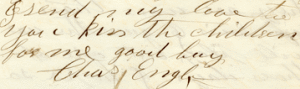 & send my love to
you kiss the children
for me good buy
Chas Engle